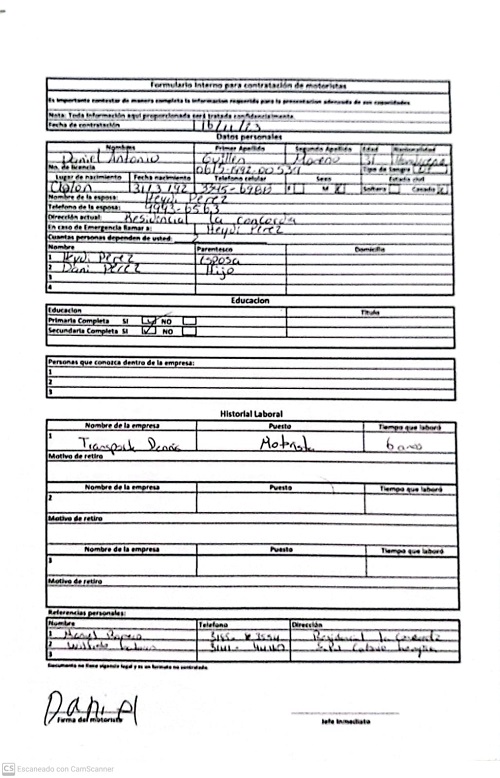 Formulario Interno para contratación de motoristas
Es importante contestar de manera completa la informacion requerida para la presentacion adecuada de sus capacidades
Nota: Toda información aqui proporcionada será tratada confidencialmente.
Fecha de contratación 16/11/23
Datos personales
Nombres Primer Apellido Segundo Apellido Edad Nacionalidad
Daniel Antonio Guillen Moreno 31 Hondureña
No. de licencia Tipo de Sangre
Lugar de nacimiento Fecha nacimiento Telefono celular Sexo Estado civil
31/3/92 F M X Soltero Casado
Nombre de la esposa: Heydi Perez
Telefono de la esposa: 9993-6563
Dirección actual: Residencial la concordia
En caso de Emergencia llamar a: Heydi Perez
Cuantas personas dependen de usted:
Nombre Parentesco Domicilio
1 Heydi Perez Esposa
2 Dani Perez Hijo
3
4
Educacion
Educacion Titulo
Primaria Completa SI ✓ NO
Secundaria Completa SI ✓ NO
Personas que conozca dentro de la empresa:
1
2
3
Historial Laboral
Nombre de la empresa Puesto Tiempo que laboró
1 Transporte Motorista 6 años
Motivo de retiro
Nombre de la empresa Puesto Tiempo que laboró
2
Motivo de retiro
Nombre de la empresa Puesto Tiempo que laboró
3
Motivo de retiro
Referencias personales:
Nombre Telefono Dirección
1 Residencial la
2
3
Documento no tiene vigencia legal y es un formato no controlado
Daniel
Firma del motorista Jefe Inmediato
CS Escaneado con CamScanner